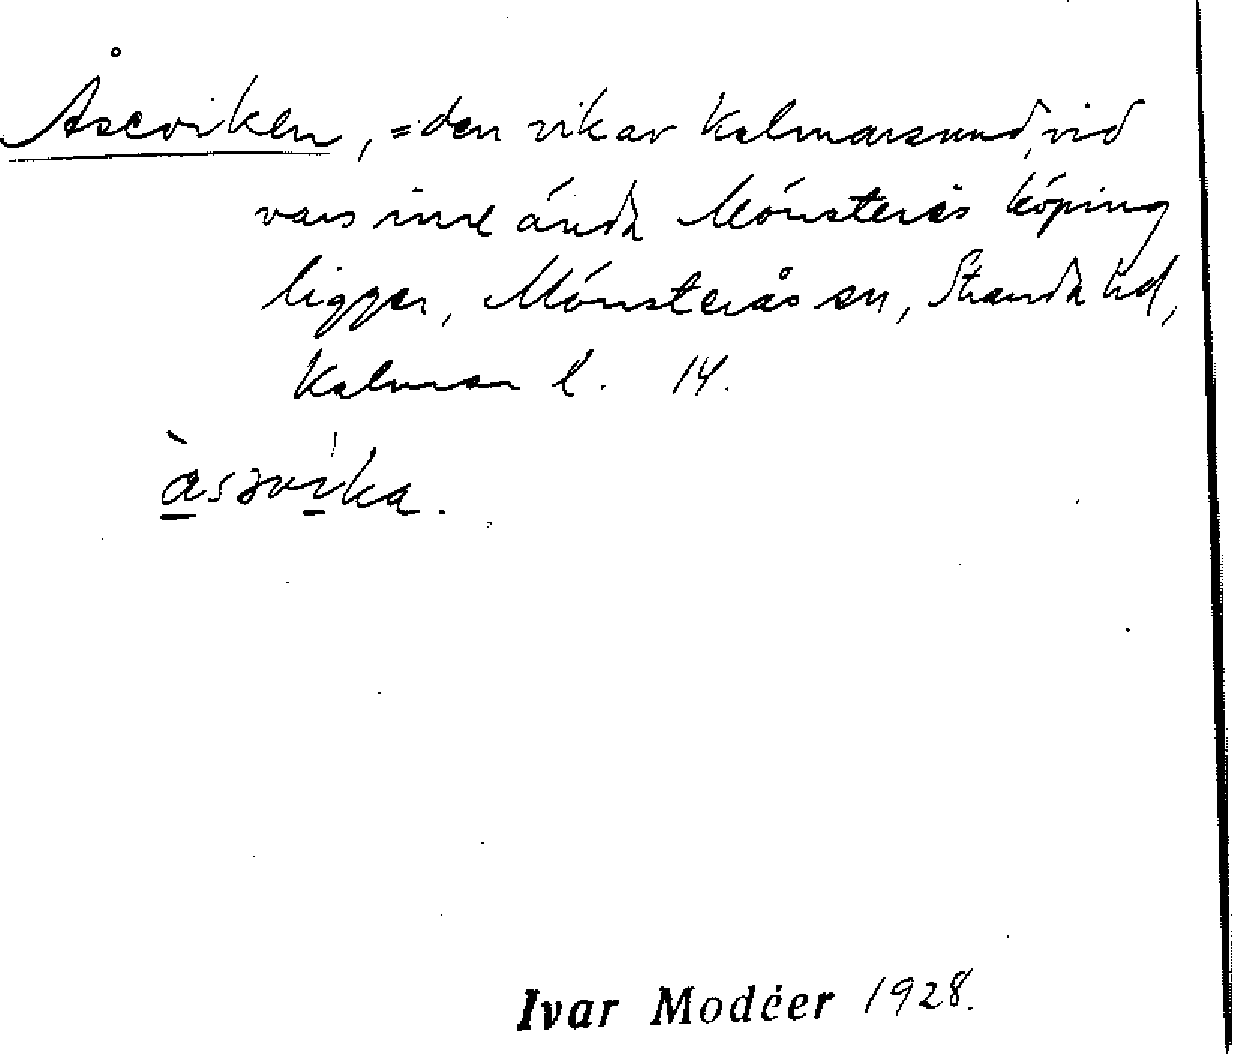 Åseviken, = den vik av Kalmarsund, vid
vars inre ända Mönsterås köping
ligger, Mönsterås sn, Stranda hd,
Kalmar l. 14.
à̱səvi̱̍ka.
Ivar Modéer 1928.